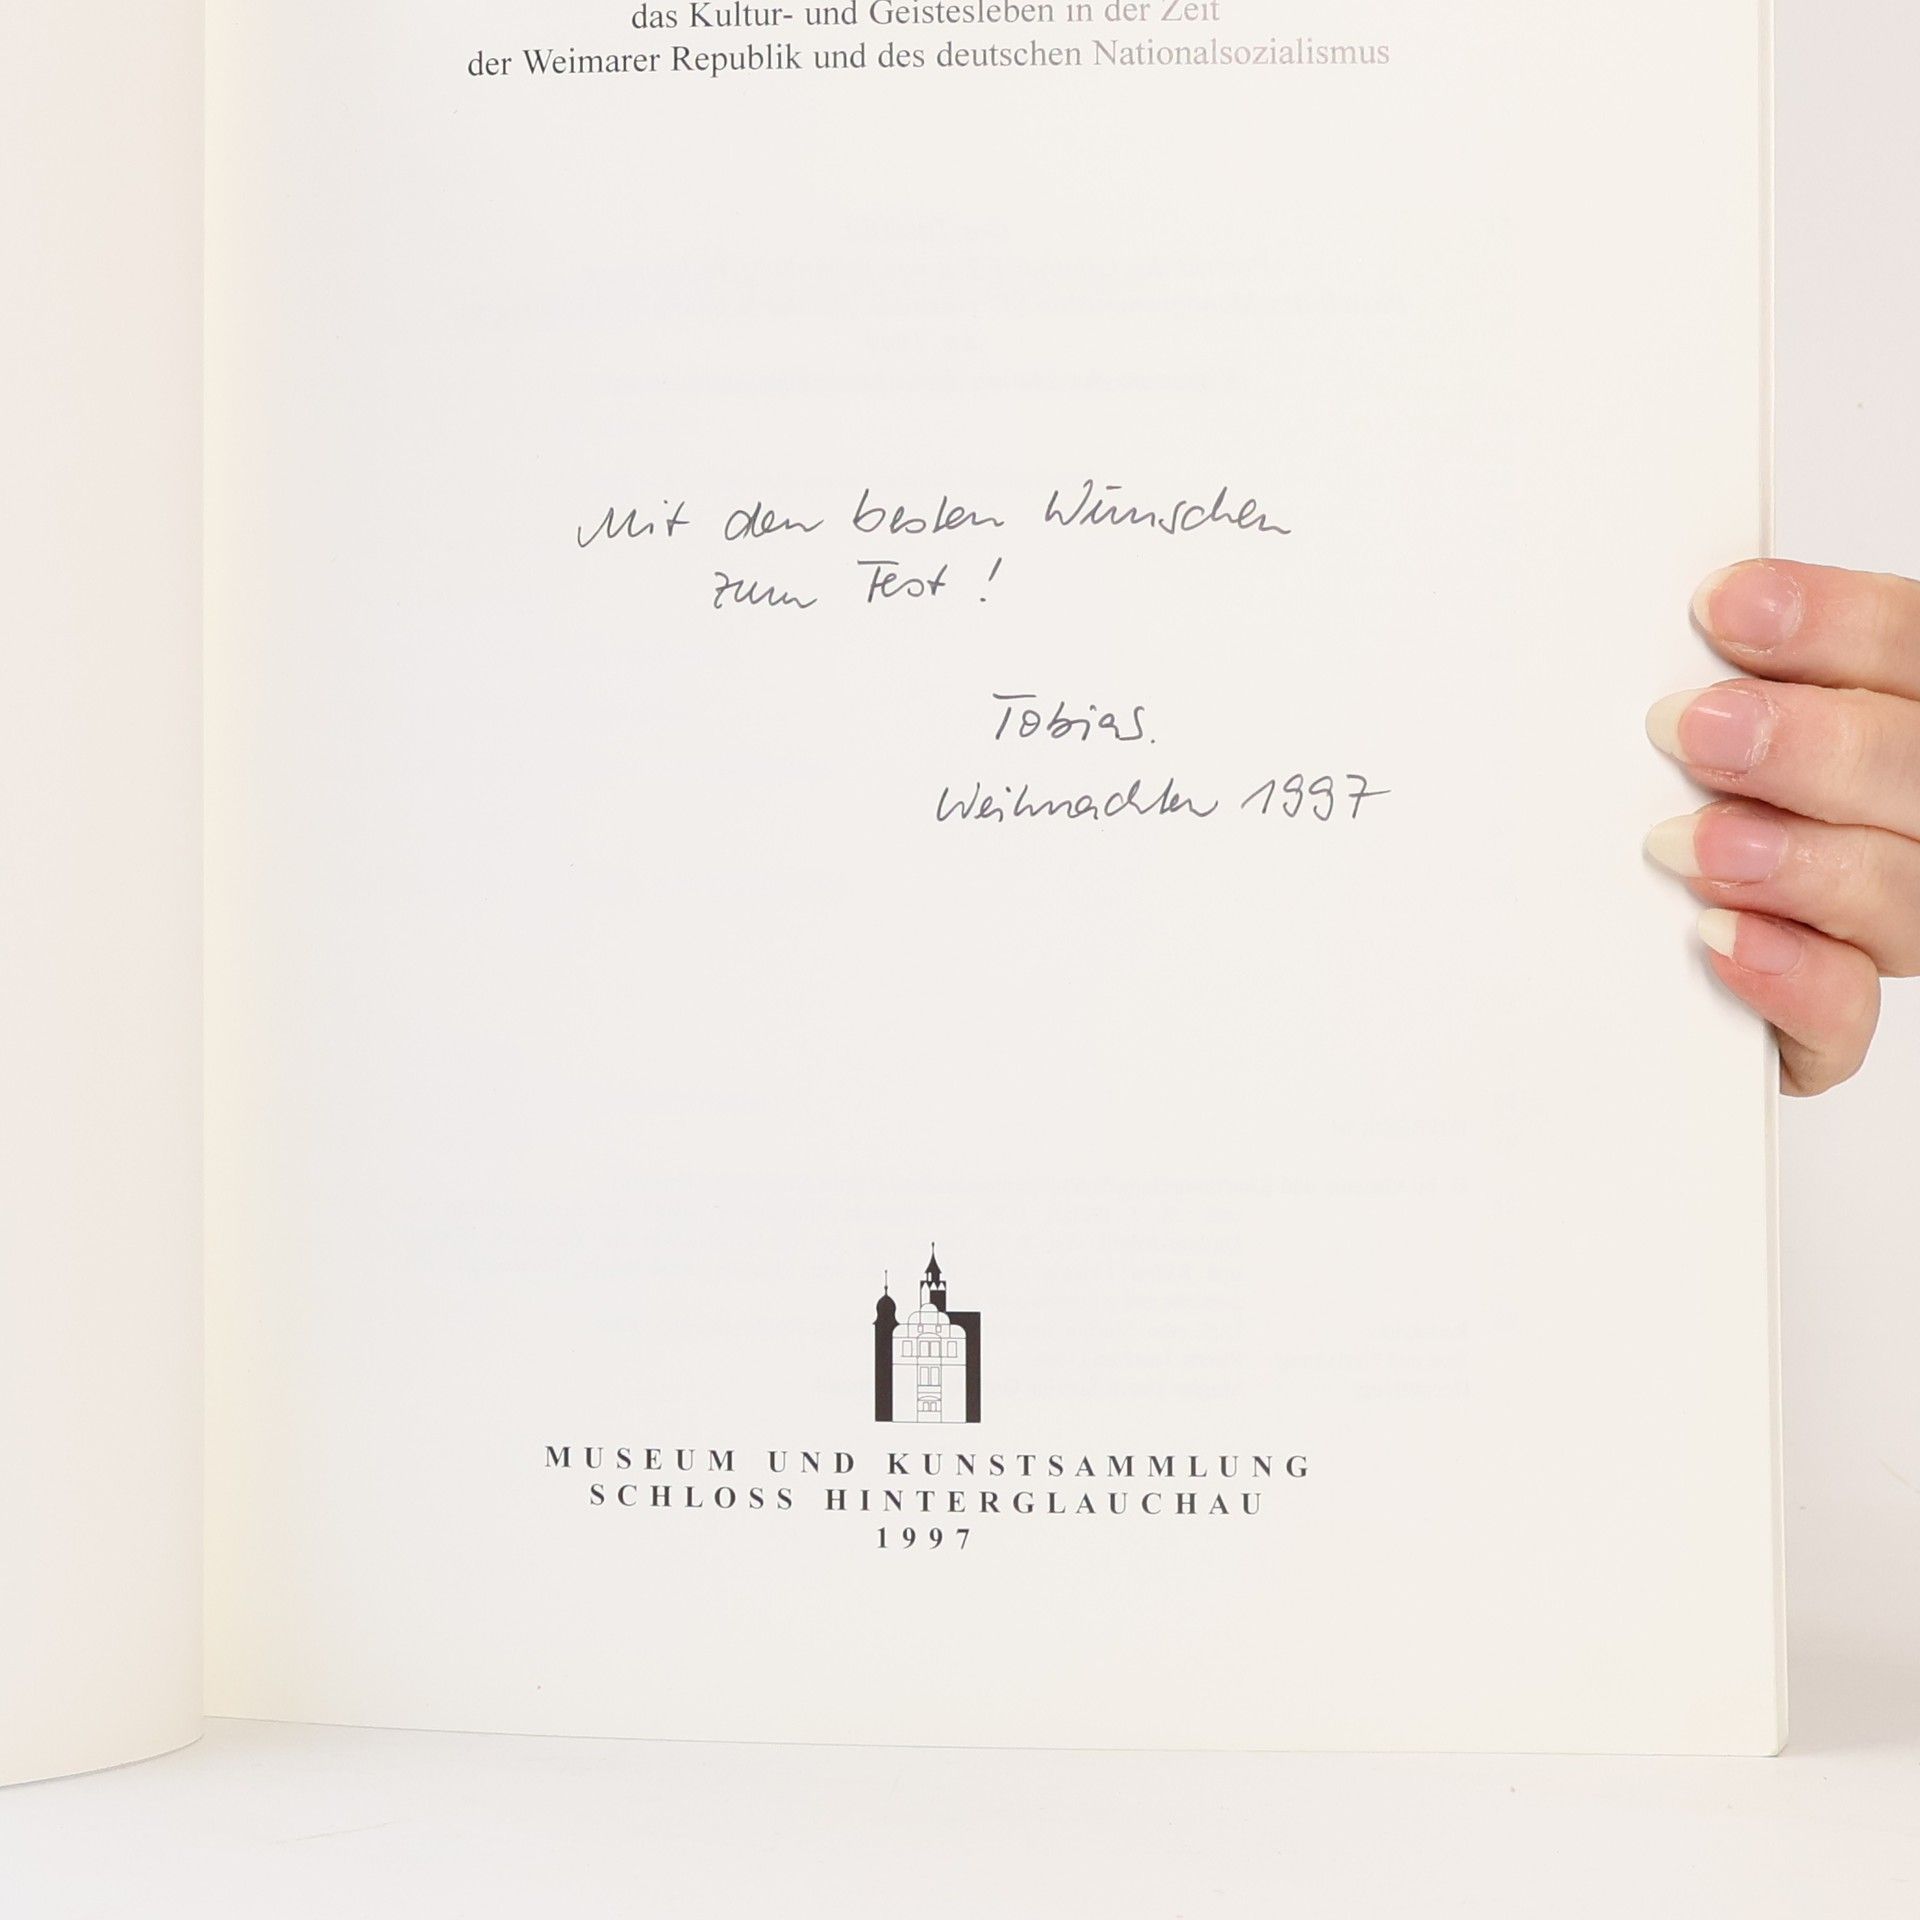 das Kultur- und Geistesleben in der Zeit
der Weimarer Republik und des deutschen Nationalsozialismus
Mit den besten Wünschen
zum Fest!
Tobias.
Weihnachten 1997
MUSEUM UND KUNSTSAMMLUNG
SCHLOSS HINTERGLAUCHAU
1997